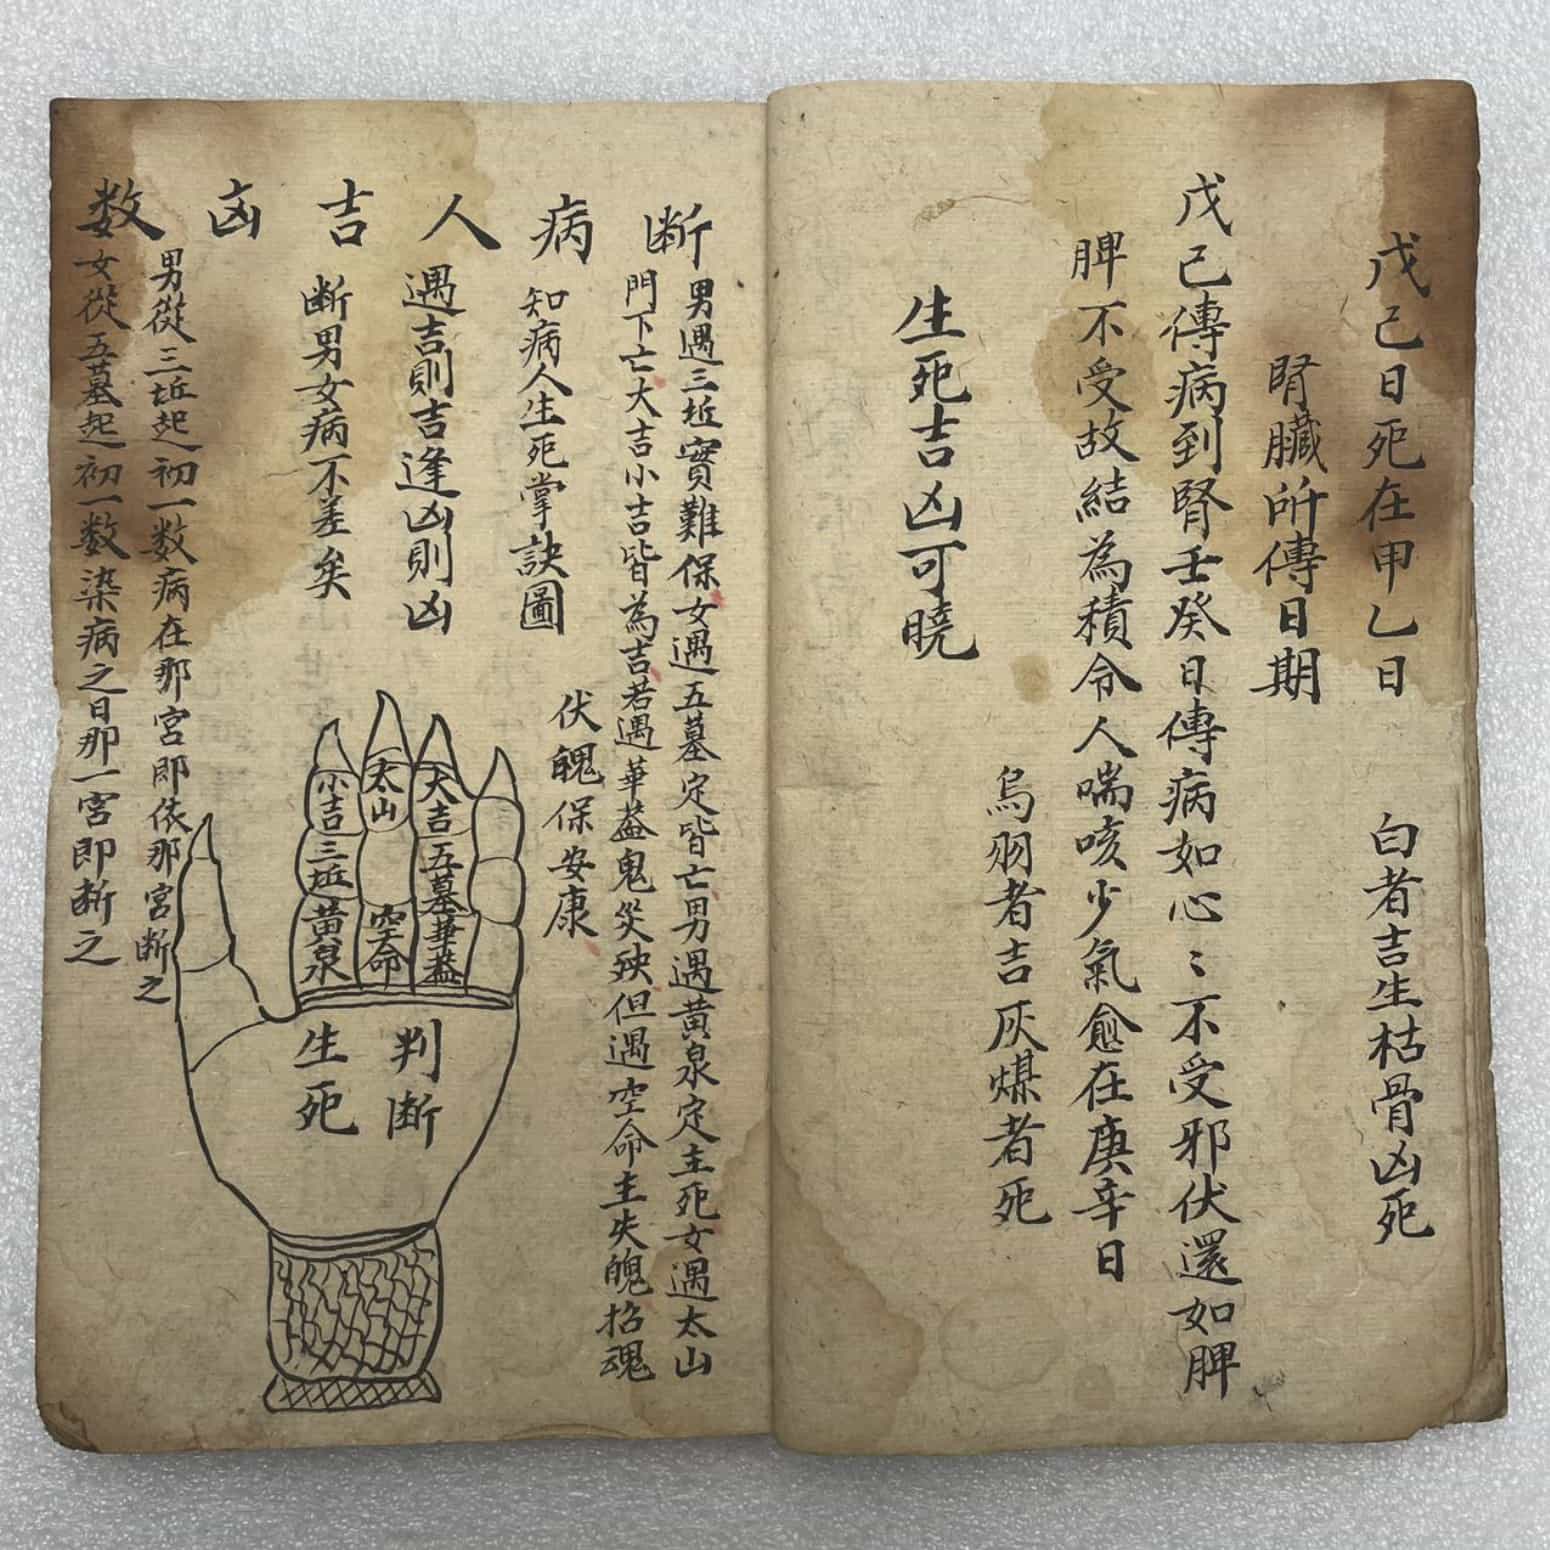 戊己日死在甲乙日　白者吉生枯骨凶死
腎臟所傳日期
戊己傳病到腎壬癸日傳病如心〻不受邪伏還如脾
脾不受故結為積令人喘咳少氣愈在庚辛日
烏羽者吉灰煤者死
生死吉凶可曉
断病人吉凶数
男遇三坵實難保女遇五墓定皆亡男遇黃泉定主死女遇太山
門下亡大吉小吉皆為吉若遇華蓋鬼災殃但遇空命主失魄招魂
伏魄保安康
知病人生死掌訣圖
遇吉則吉逢凶則凶
断男女病不差矣
男從三坵起初一数病在那宮即依那宮断之
女從五墓起初一数染病之日那一宮即断之
大吉
五墓
華蓋
太山
空命
小吉
三坵
黃泉
判断
生死